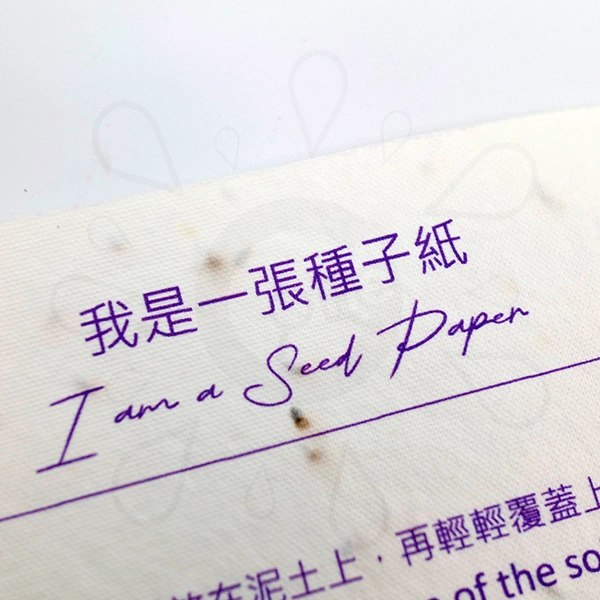 我是一張種子紙
I am a Seed Paper
在泥土上，再輕輕覆蓋上
of the so